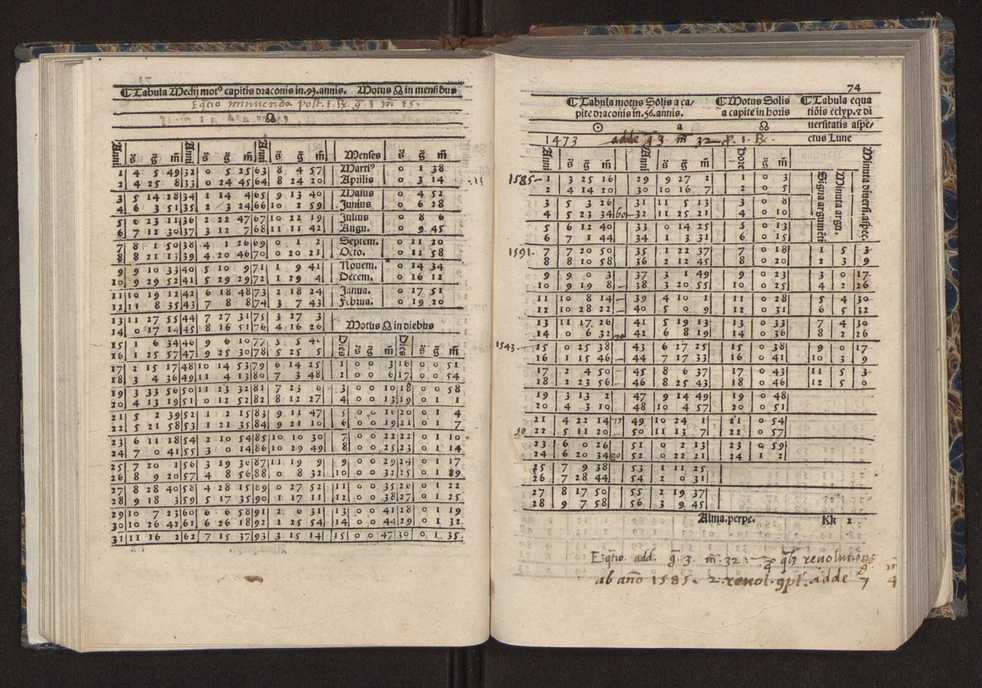 Tabula Medij mot⁹ capitis draconis in .93. annis. Motus ☊ in mensibus
Eqtio minuenda post. 1. Rx. g. 1 m 15.
☊
Anni s̄ ḡ m̄ Anni s̄ ḡ m̄ Anni s̄ ḡ m̄ Menses s̄ ḡ m̄
1 4 5 49 32 0 5 25 63 8 4 57 Marti⁹ 0 1 38
2 4 25 8 33 0 24 45 64 8 24 20 Aprilis 0 3 14
3 5 14 28 34 1 14 4 65 9 13 40 Maius 0 4 52
4 6 3 51 35 2 3 24 66 10 2 59 Junius 0 6 28
5 6 23 11 36 2 22 47 67 10 22 19 Julius 0 8 6
6 7 12 30 37 3 12 7 68 11 11 42 Augu. 0 9 45
7 8 1 50 38 4 1 26 69 0 1 2 Septem. 0 11 20
8 8 21 13 39 4 20 46 70 0 20 21 Octo. 0 11 58
9 9 10 33 40 5 10 9 71 1 9 41 Novem. 0 14 34
10 9 29 52 41 5 29 29 72 1 29 4 Decem. 0 16 12
11 10 19 12 42 6 18 48 73 2 18 24 Janua. 0 17 51
12 11 8 35 43 7 8 8 74 3 7 43 Februa. 0 19 20
13 11 27 55 44 7 27 31 75 3 27 3
14 0 17 14 45 8 16 51 76 4 16 26 Motus ☊ in diebus
15 1 6 34 46 9 6 10 77 5 5 46 Dies s̄ ḡ m̄ Dies s̄ ḡ m̄
16 1 25 57 47 9 25 30 78 5 25 5
17 2 15 17 48 10 14 53 79 6 14 25 1 0 0 3 16 0 0 51
18 3 4 36 49 11 4 13 80 7 3 48 2 0 0 6 17 0 0 54
19 3 23 56 50 11 23 32 81 7 23 6 3 0 0 10 18 0 0 58
20 4 13 19 51 0 12 52 82 8 12 27 4 0 0 13 19 0 1 1
21 5 2 39 52 1 2 15 83 9 11 47 5 0 0 16 20 0 1 4
22 5 21 58 53 1 21 35 84 9 21 10 6 0 0 19 21 0 1 7
23 6 11 18 54 2 10 54 85 10 10 30 7 0 0 22 22 0 1 10
24 7 0 41 55 3 0 14 86 10 29 49 8 0 0 25 23 0 1 14
25 7 20 1 56 3 19 30 87 11 19 9 9 0 0 29 24 0 1 17
26 8 9 20 57 4 8 56 88 0 8 32 10 0 0 32 25 0 1 19
27 8 28 40 58 4 28 15 89 0 27 52 11 0 0 35 26 0 1 22
28 9 18 3 59 5 17 35 90 1 17 11 12 0 0 38 27 0 1 25
29 10 7 23 60 6 6 58 91 2 6 31 13 0 0 41 28 0 1 19
30 10 26 42 61 6 26 18 92 1 25 54 14 0 0 44 29 0 1 32
31 11 16 2 62 7 15 37 93 3 15 14 15 0 0 47 30 0 1 35
74
Tabula motus Solis a capite draconis in .56. annis. Motus Solis a capite in horis Tabula equatiōis eclyp. &amp; diuersitatis aspectus Lune
☉ a ☊
1473 adde g 3 m 32 p. 1. Rx.
Anni s̄ ḡ m̄ Anni s̄ ḡ m̄ Hore ḡ m̄ Signa argumēti Minuta argu. Minuta diuersi. aspec.
1585 1 3 25 16 29 9 27 2 1 0 3
2 4 14 20 30 10 16 7 2 0 5
3 5 3 26 31 11 5 13 3 0 8
4 5 23 34 60 32 11 25 21 4 0 10
5 6 12 40 33 0 14 25 5 0 13
6 7 1 44 34 1 3 31 6 0 15
1591. 7 7 20 50 35 1 22 37 7 0 18 1 5 3
8 8 10 58 36 2 12 45 8 0 20 2 3 9
9 9 0 3 37 3 1 49 9 0 23 3 0 17
10 9 19 8 38 3 20 55 10 0 25 4 2 26
11 10 8 14 39 4 10 1 11 0 28 5 4 30
12 10 28 22 40 5 0 9 12 0 31 6 5 32
13 11 17 26 41 5 19 13 13 0 33 7 4 30
14 0 6 32 42 6 8 19 14 0 36 8 2 26
1543 15 0 25 38 43 6 17 25 15 0 38 9 0 17
16 1 15 46 44 7 17 33 16 0 41 10 3 9
17 2 4 50 45 8 6 37 17 0 43 11 5 3
18 2 23 56 46 8 25 43 18 0 46 12 5 0
19 3 13 2 47 9 14 49 19 0 48
20 4 3 10 48 10 4 57 20 0 51
21 4 22 14 49 10 24 1 21 0 54
22 5 11 20 50 11 13 7 22 0 57
23 6 0 26 51 0 2 13 23 0 59
24 6 20 34 52 0 22 21 24 1 2
25 7 9 38 53 1 11 25
26 7 28 44 54 2 0 31
27 8 17 50 55 2 19 37
28 9 7 58 56 3 9 45
Alma. perpe. Kk 2
Eqtio. add. g. 3. m. 32. revolut.
ab año 1585. 2 revol. gpl. adde 7 4